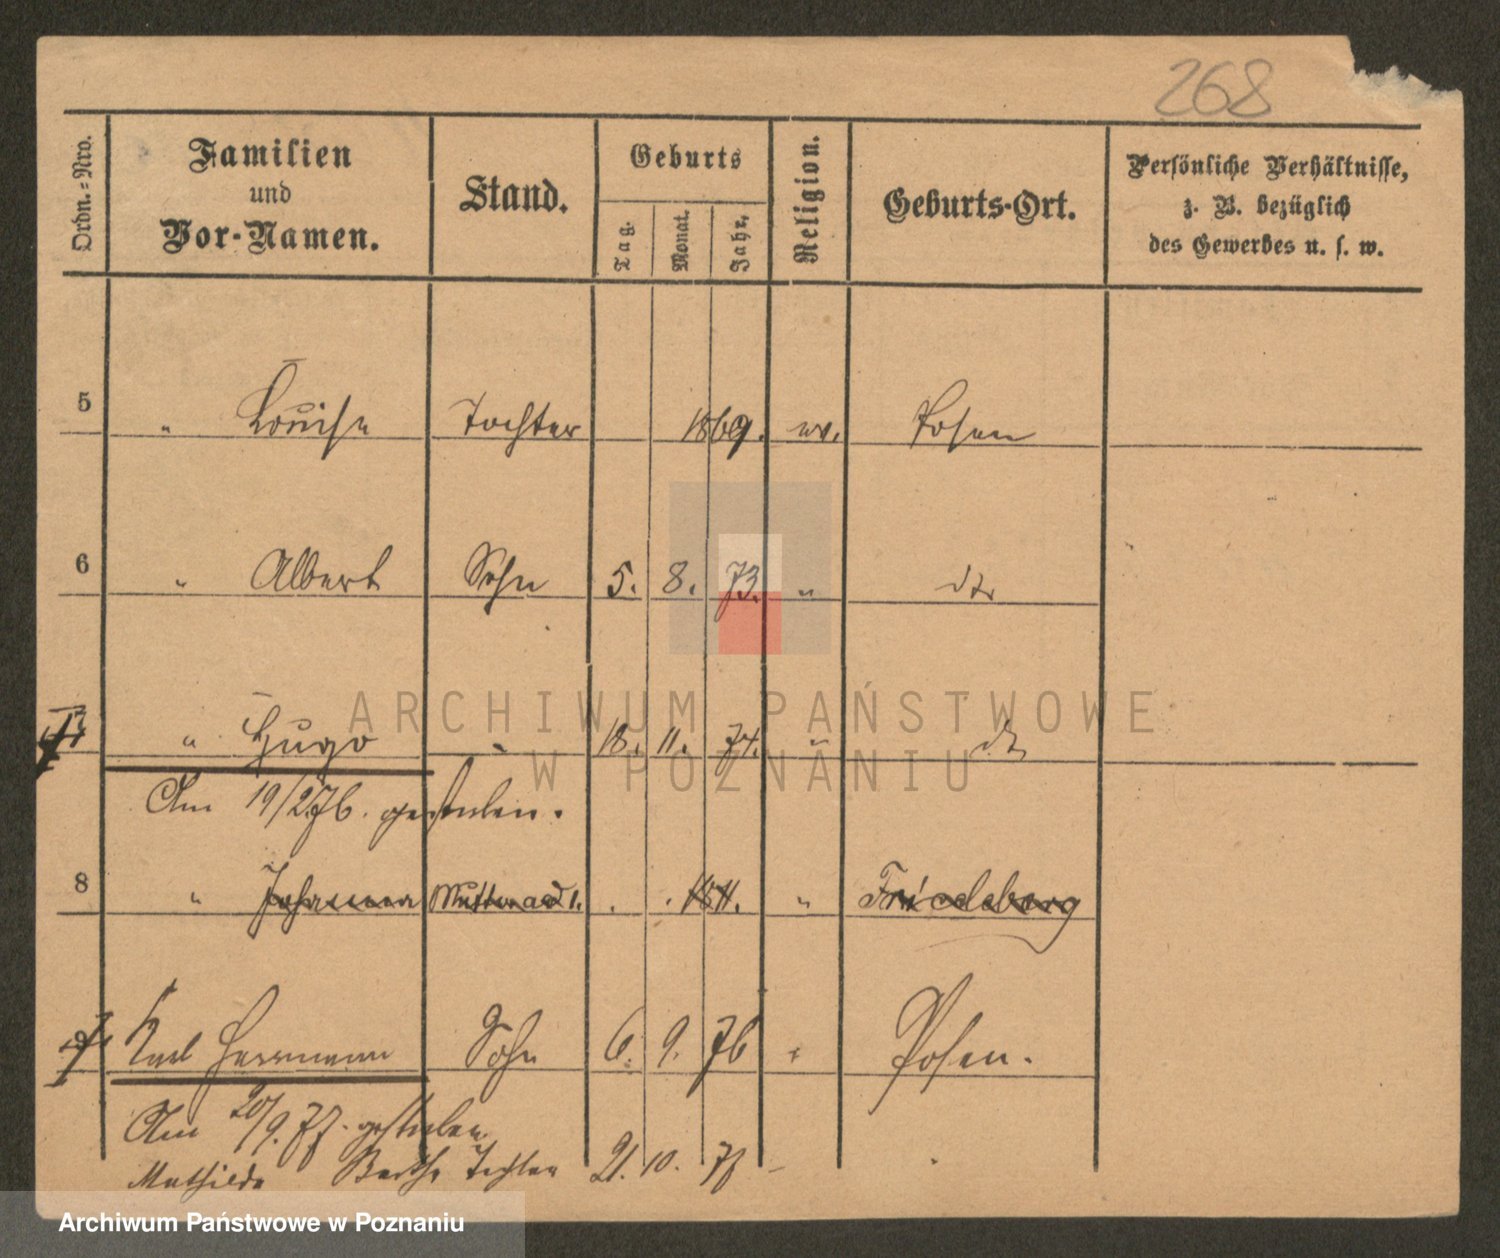 268
Ordn.-Nro.
Familien und Vor-Namen.
Stand.
Geburts
Tag.
Monat.
Jahr.
Religion.
Geburts-Ort.
Persönliche Verhältnisse, z. B. bezüglich des Gewerbes u. s. w.
5 " Louise Tochter 1869. ev. Posen
6 " Albert Sohn 5. 8. 73. " dto
7 " Hugo " 18. 11. 74. " dto
Am 19/2.76. gestorben.
8 " Johanna 1811. " Friedeberg
9 Karl Herrmann Sohn 6. 9. 76 " Posen.
Am 20/9. 77. gestorben
Mathilde Bertha Tochter 21. 10. 78 -
ARCHIWUM PAŃSTWOWE
W POZNANIU
Archiwum Państwowe w Poznaniu